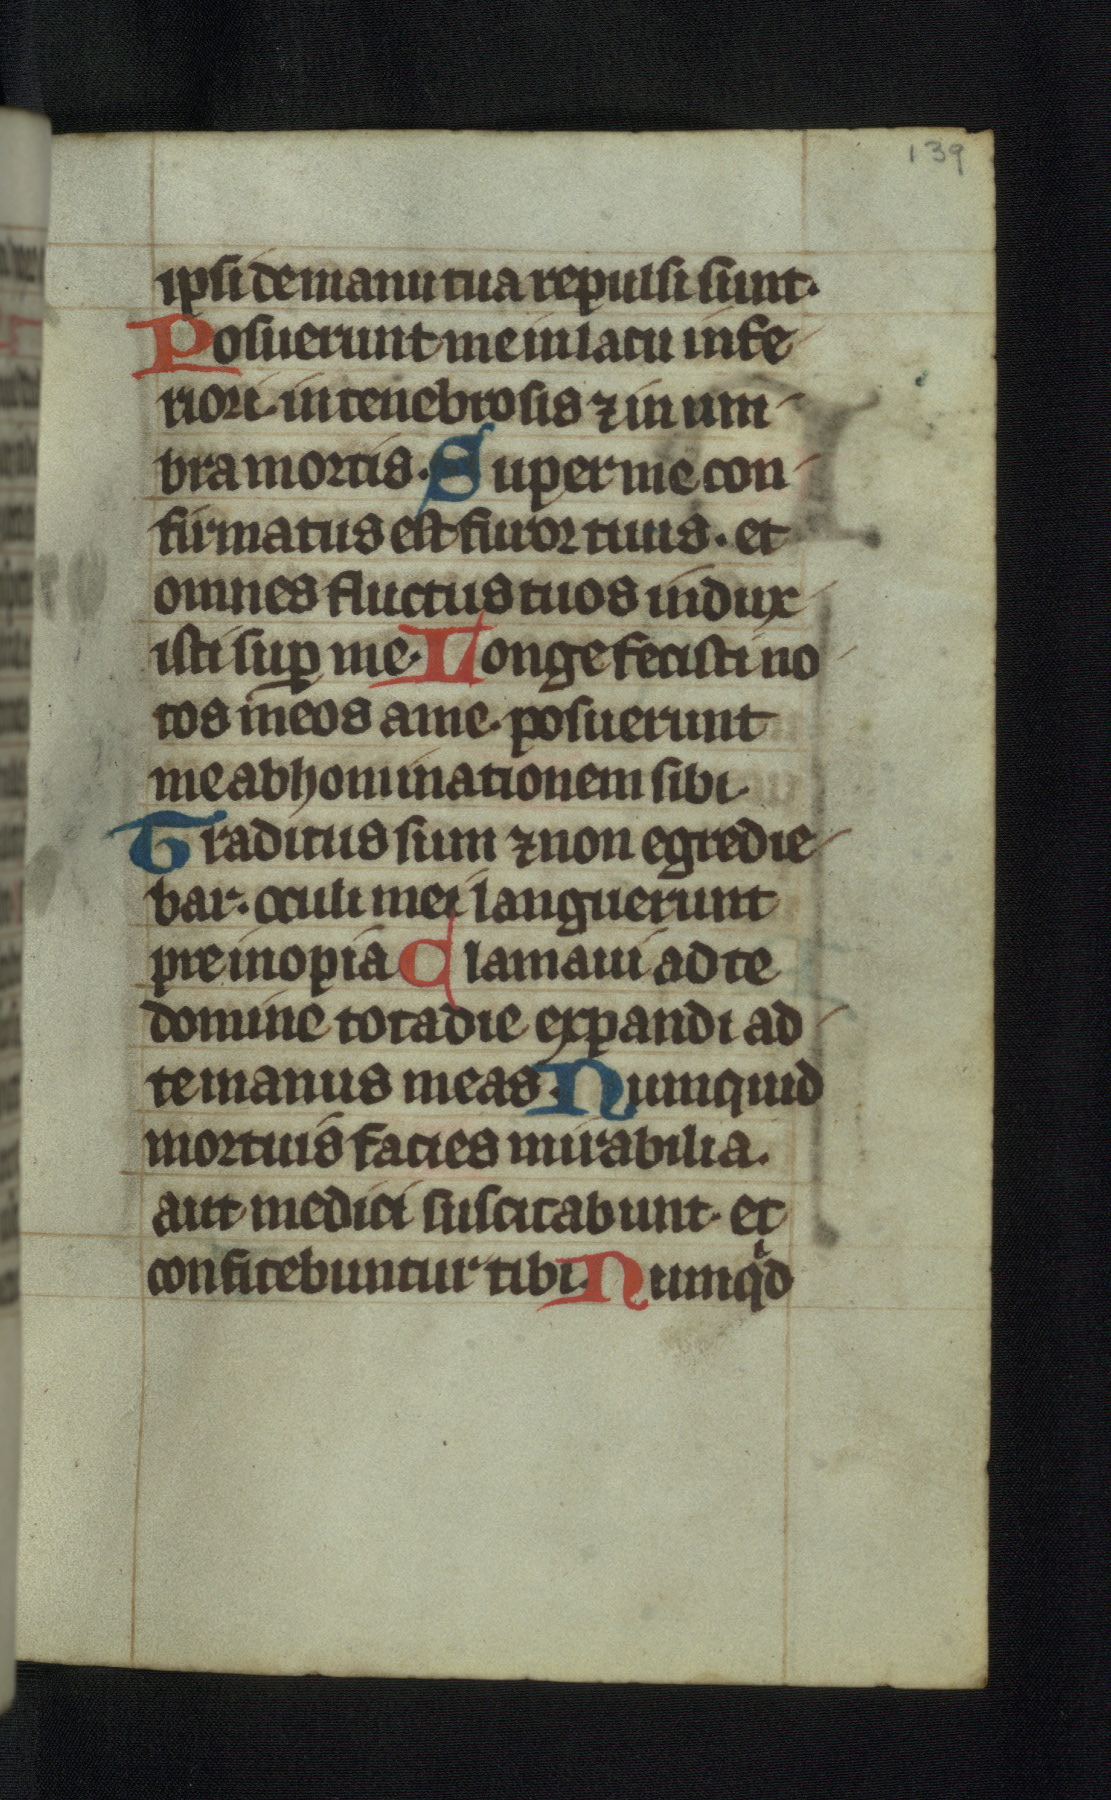 139
ipsi de manu tua repulsi sunt.
Posuerunt me in lacu infe
riori. in tenebrosis ⁊ in um
bra mortis. Super me con
firmatus est furor tuus. et
omnes fluctus tuos indux
isti suꝑ me. Longe fecisti no
tos meos a me. posuerunt
me abhominationem sibi.
Traditus sum ⁊ non egredie
bar. oculi mei languerunt
pre inopia Clamaui ad te
domine tota die expandi ad
te manus meas. Numquid
mortuis facies mirabilia.
aut medici suscitabunt. et
confitebuntur tibi. Numqͥd